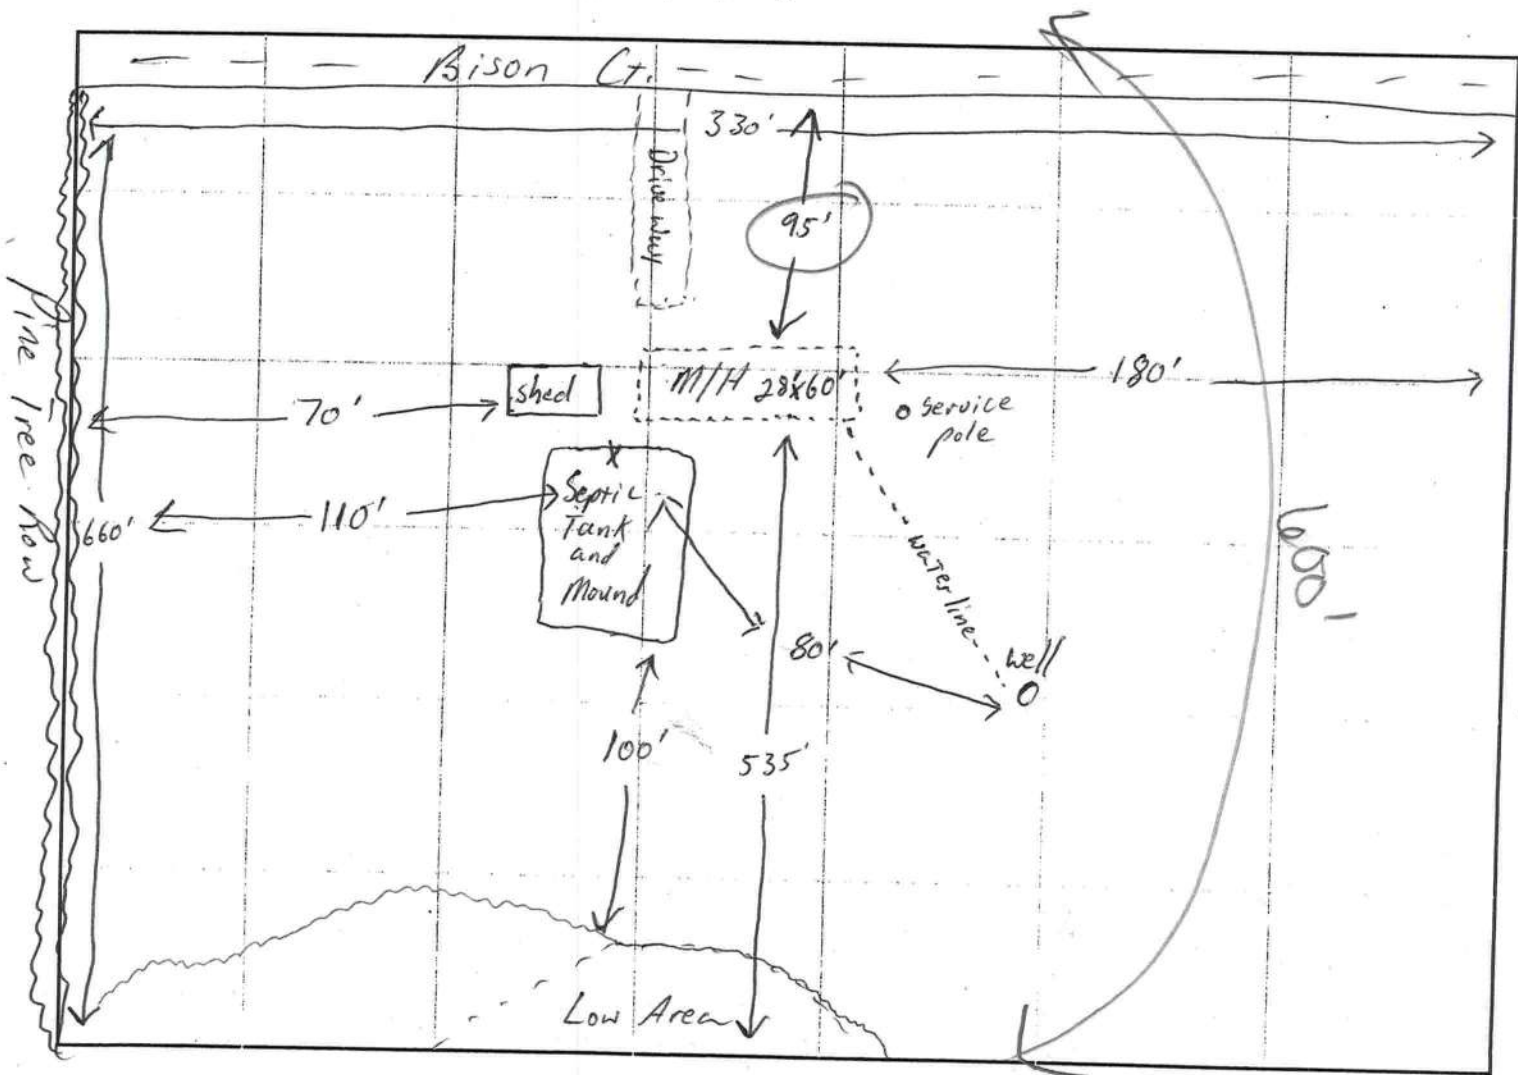 Bison Ct.
330'
Driveway
95'
Pine Tree Row
shed
M/H 28'x60'
180'
70'
service
pole
110'
Septic
Tank
and
Mound
X
660'
water line
600'
80'
well
100'
535'
Low Area